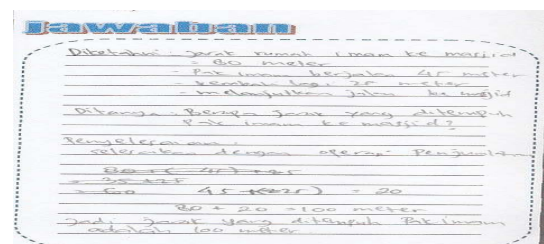 Jawaban
Diketahui - Jarak rumah imam ke masjid
= 80 meter
- Pak imam berjalan 45 meter
- kembali lagi 25 meter
- melanjutkan jalan ke masjid
Ditanya : Berapa jarak yang ditempuh
Pak imam ke masjid?
Penyelesaian :
selesaikan dengan operasi Penjumlahan
80 + (-45) + 25
= 35 + 25
= 60 45 + (-25) = 20
80 + 20 = 100 meter
Jadi jarak yang ditempuh Pak imam
adalah 100 meter